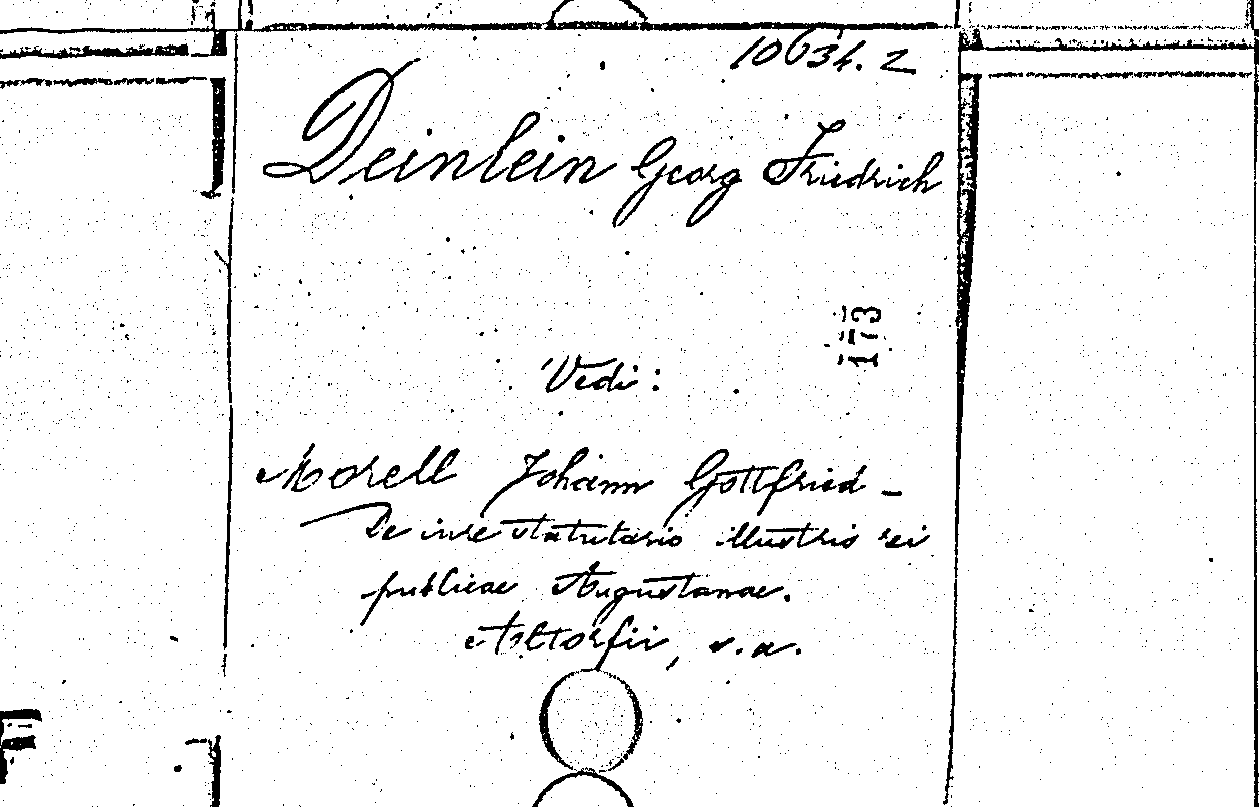 10634. 2
Deinlein Georg Friedrich
173
Vedi :
Morell Johann Gottfried -
De iure statutario illustris rei
publicae Augustanae.
Altorfii, s.a.